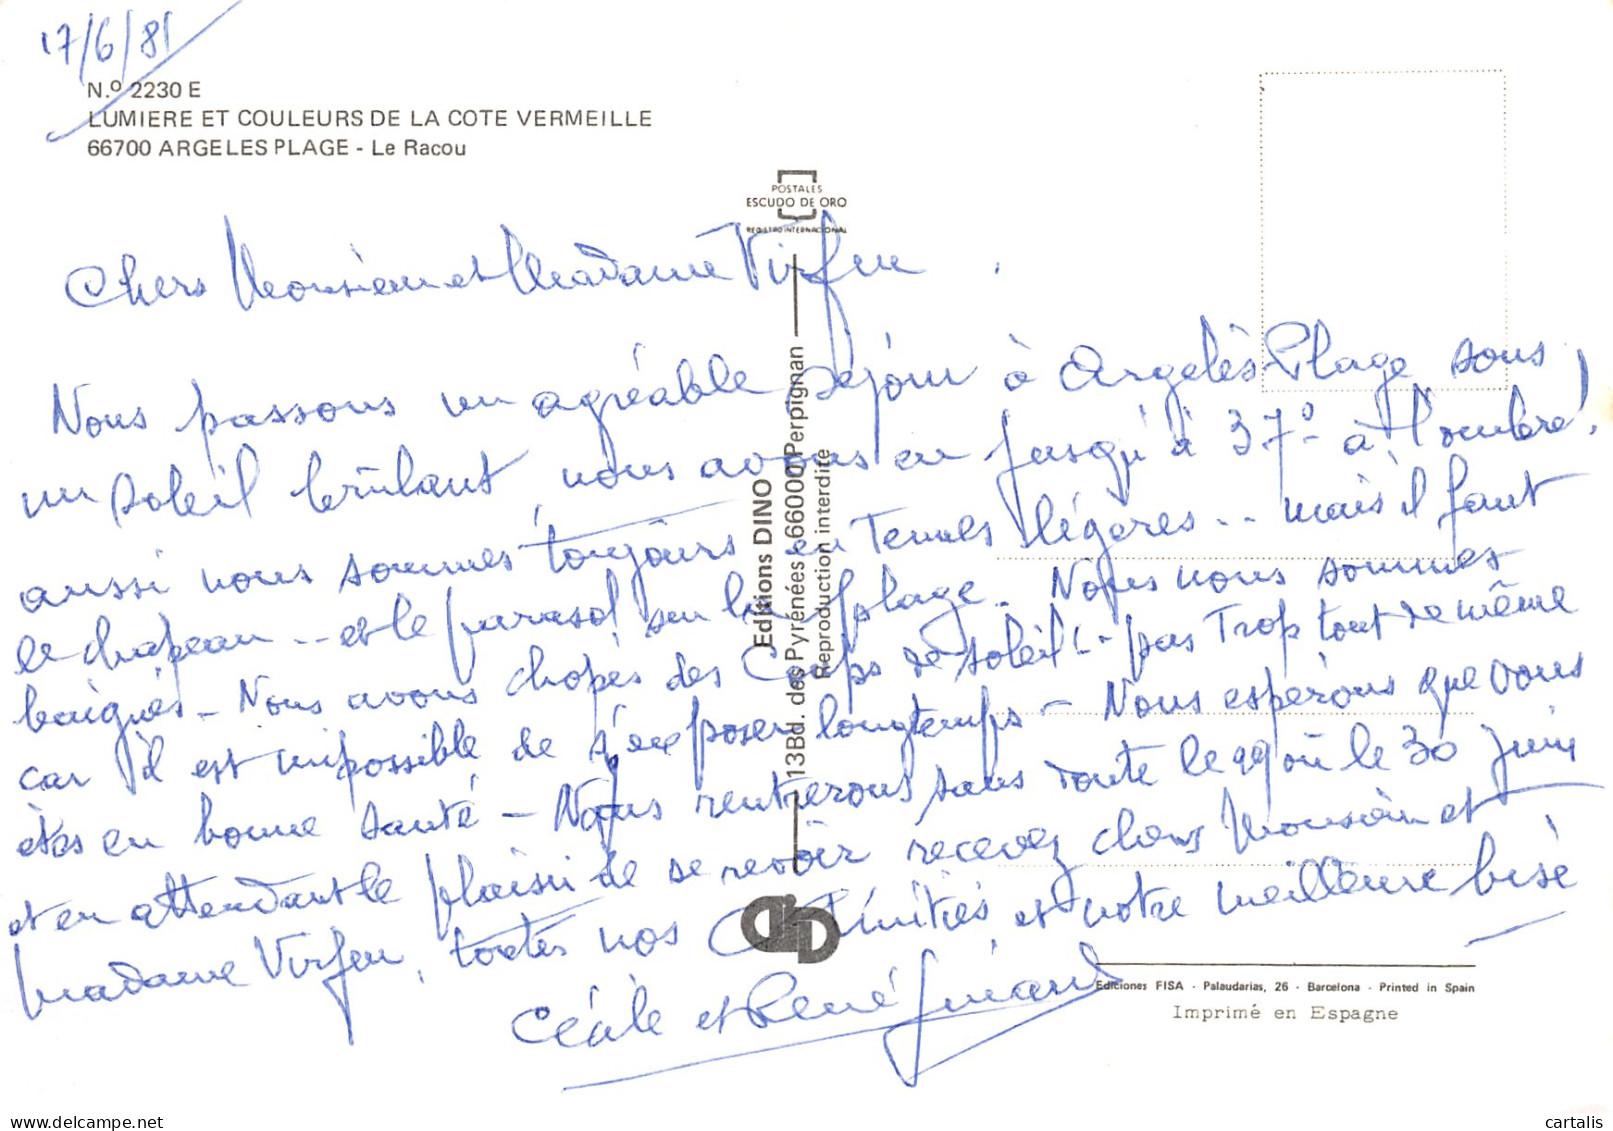 17/6/81
N.º 2230 E
LUMIERE ET COULEURS DE LA COTE VERMEILLE
66700 ARGELES PLAGE - Le Racou
POSTALES
ESCUDO DE ORO
REGISTRO INTERNACIONAL
Chers Monsieur et Madame
Nous passons un agréable séjour à Argelès Plage sous
un soleil brûlant, nous avons eu jusqu'à 37° à l'ombre !
aussi nous sommes toujours en tenues légères .. mais il faut
le chapeau .. et le parasol sur la plage. Nous nous sommes
baignés - Nous avons chopés des coups de soleil .. pas trop tout de même
car il est impossible de s'exposer longtemps - Nous espérons que vous
êtes en bonne santé - Nous rentrerons sans doute le 29 où le 30 Juin
et en attendant le plaisir de se revoir recevez chers Monsieur et
Madame, toutes nos Amitiés et notre meilleure bise
Cécile et René
Editions DINO
13 Bd. des Pyrénées 66000 Perpignan
Reproduction interdite
Ediciones FISA - Palaudarias, 26 - Barcelona - Printed in Spain
Imprimé en Espagne
delcampe.net
cartalis